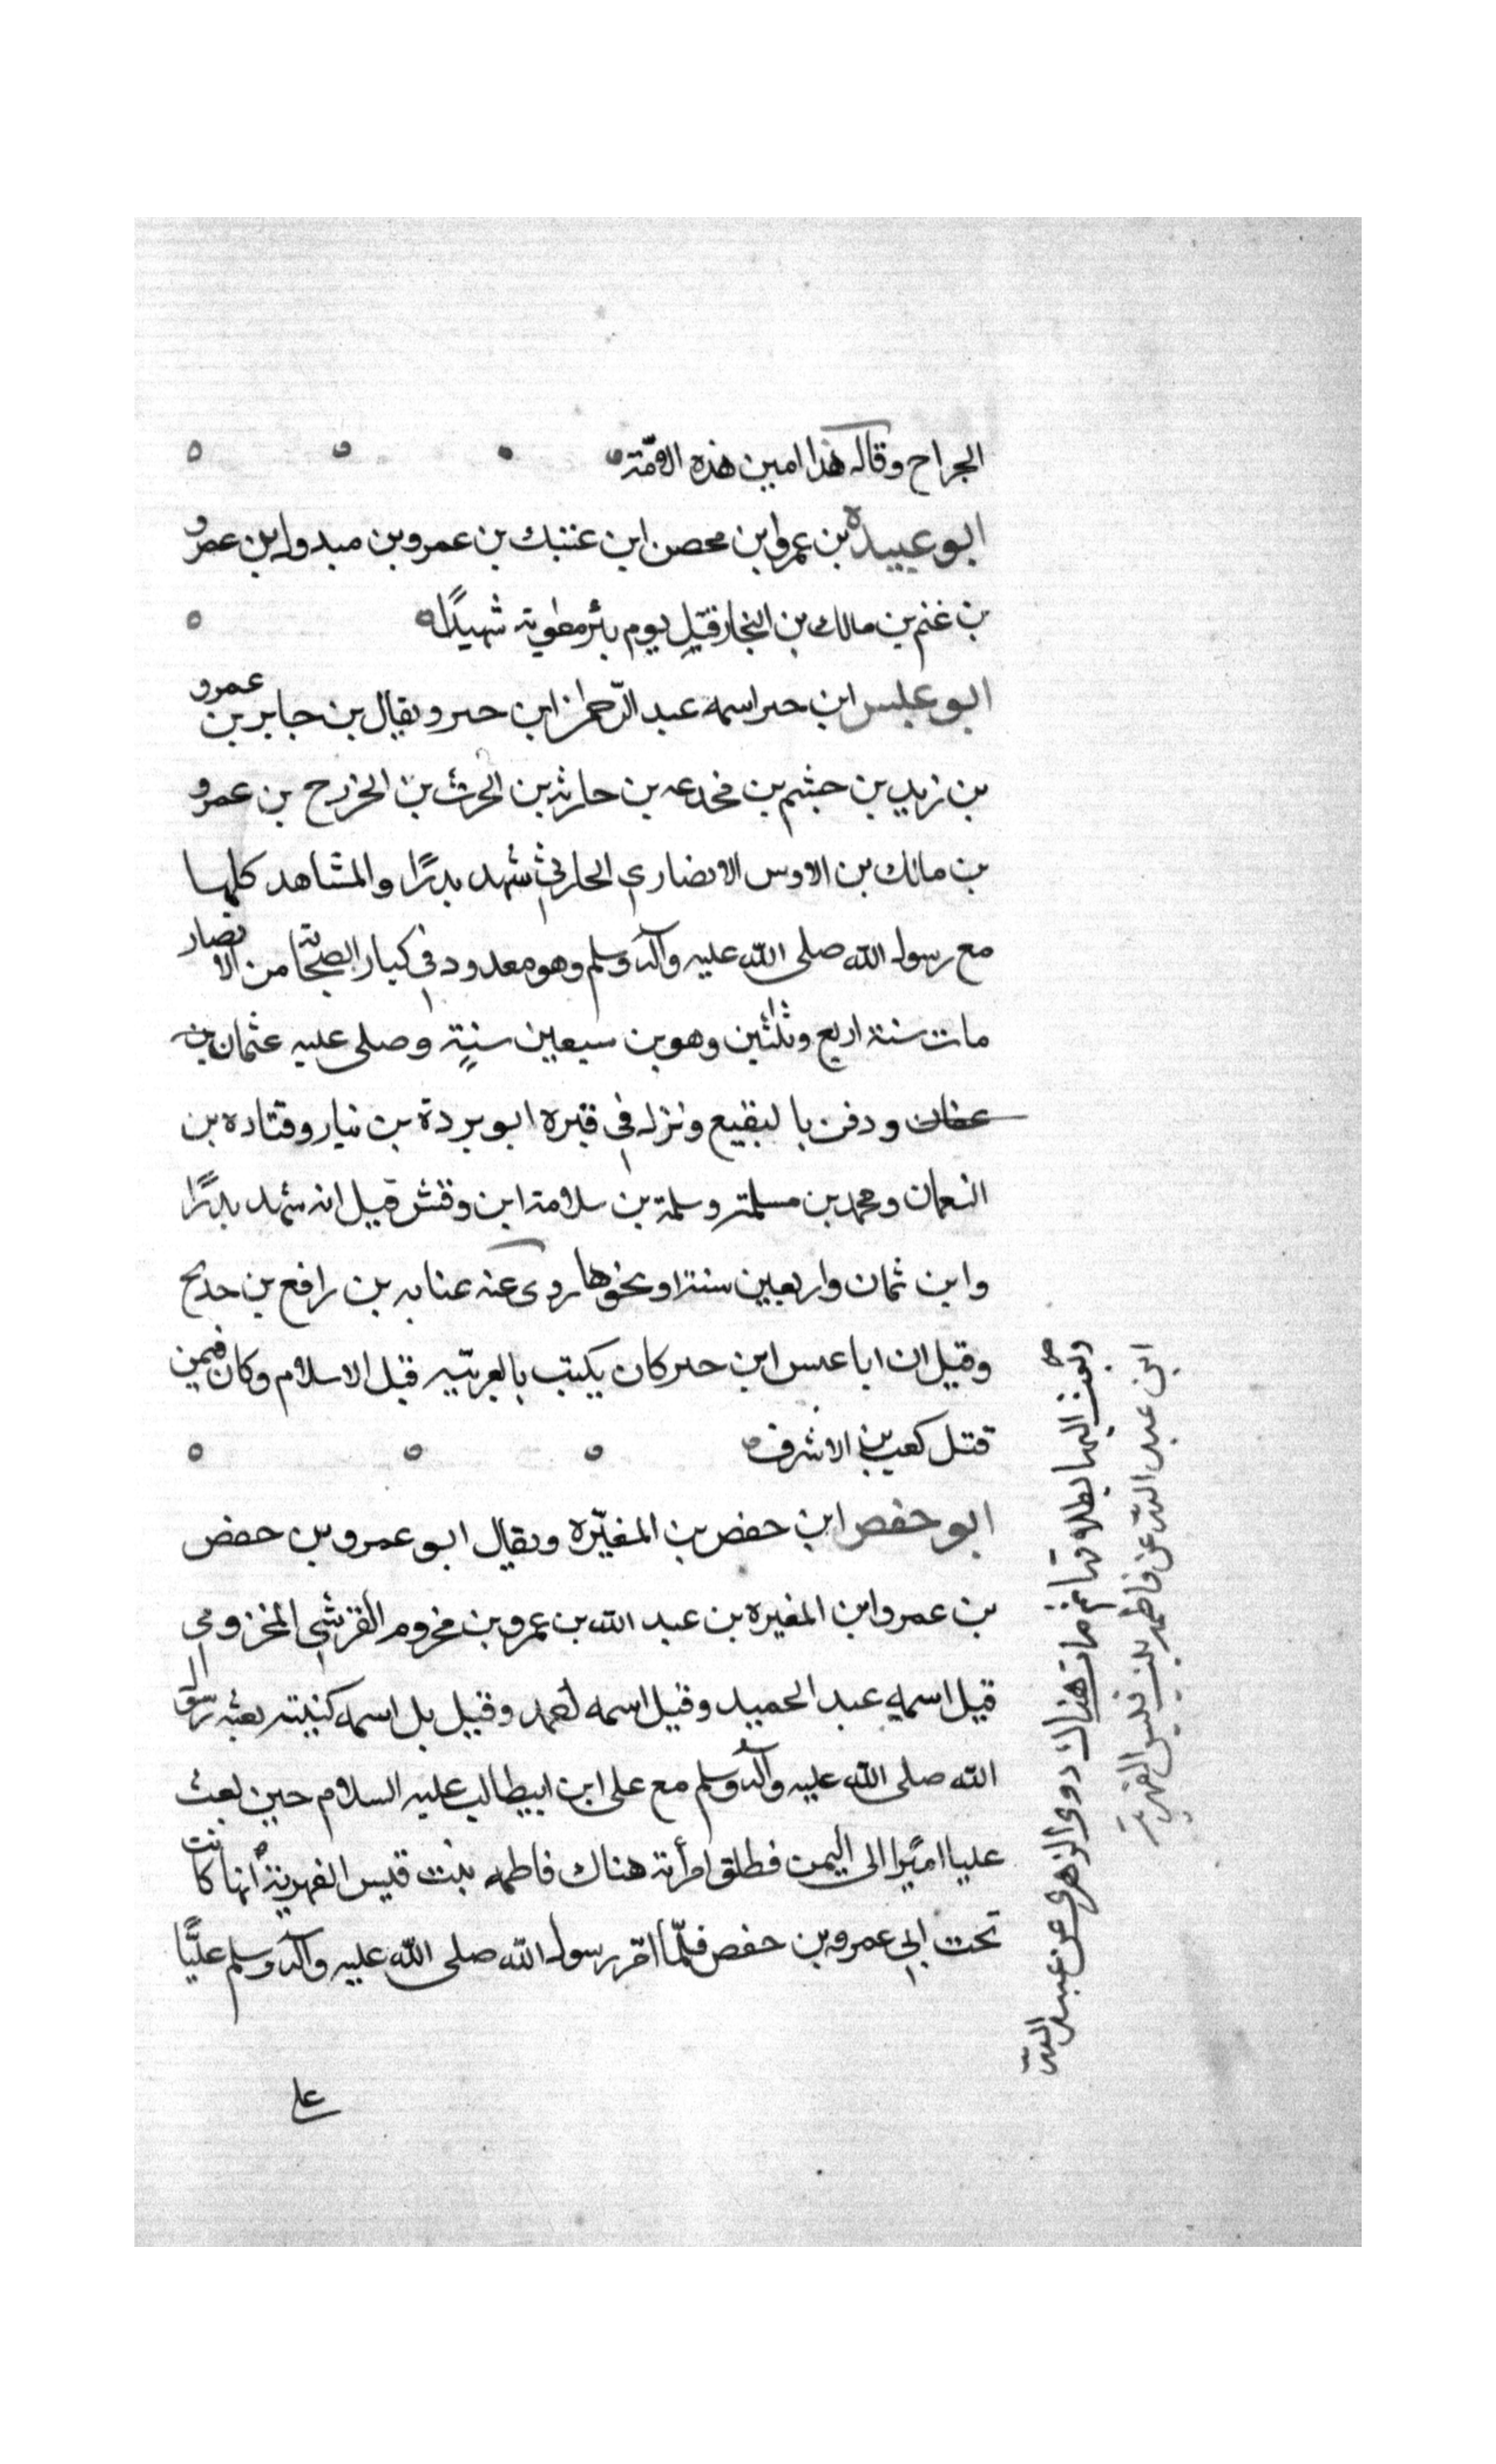 الجراح وقال هذا امين هذه الامّة
ابو عبيدة بن عمرو ابن محصن ابن عتيك بن عمرو بن مبدول ابن عمرو
بن غنم بن مالك بن النجار قتل يوم بئر معوية شهيدًا
ابو عبس ابن حبر اسمه عبد الرّحمن ابن حبر ويقال بن جابر بن عمرو
بن زيد بن جشم بن مجدعه بن حارثه بن الحرث بن الخزرج بن عمرو
بن مالك بن الاوس الانصاري الحارثي شهد بدرًا والمشاهد كلها
مع رسول الله صلى الله عليه وآله وسلم وهو معدود في كبار الصحابة من الانصار
مات سنة اربع وثلثين وهو بن سبعين سنةٍ وصلى عليه عثمان بن
عفان ودفن بالبقيع ونزل في قبره ابو بردة بن نيار وقتاده بن
النعمان ومحمد بن مسلمة وسلمة بن سلامة ابن وقش قيل انه شهد بدرًا
وابن ثمان واربعين سنة او نحوها روى عنه عبايه بن رافع بن خديج
وقيل ان ابا عبس ابن حبر كان يكتب بالعربيّه قبل الاسلام وكان فيمن
قتل كعب بن الاشرف
ابو حفص ابن حفص بن المغيّره ويقال ابو عمرو بن حفص
بن عمرو ابن المغيره بن عبد الله بن عمرو بن مخزوم القرشي المخزومي
قيل اسمه عبد الحميد وقيل اسمه احمد وقيل بل اسمه كنيته بعثه رسول
الله صلى الله عليه وآله وسلم مع على ابن ابيطالب عليه السلام حين بعث
عليا اميرًا الى اليمن فطلق امرأته هناك فاطمه بنت قيس الفهرية انها كانت
تحت ابي عمرو بن حفص فلمّا امّر رسول الله صلى الله عليه وآله وسلم عليًّا
وبعث اليها بطلاقها ثم مات هناك روى الزهرى عن عبيد الله
ابن عبد الله عن فاطمه بنت قيس الفهرية